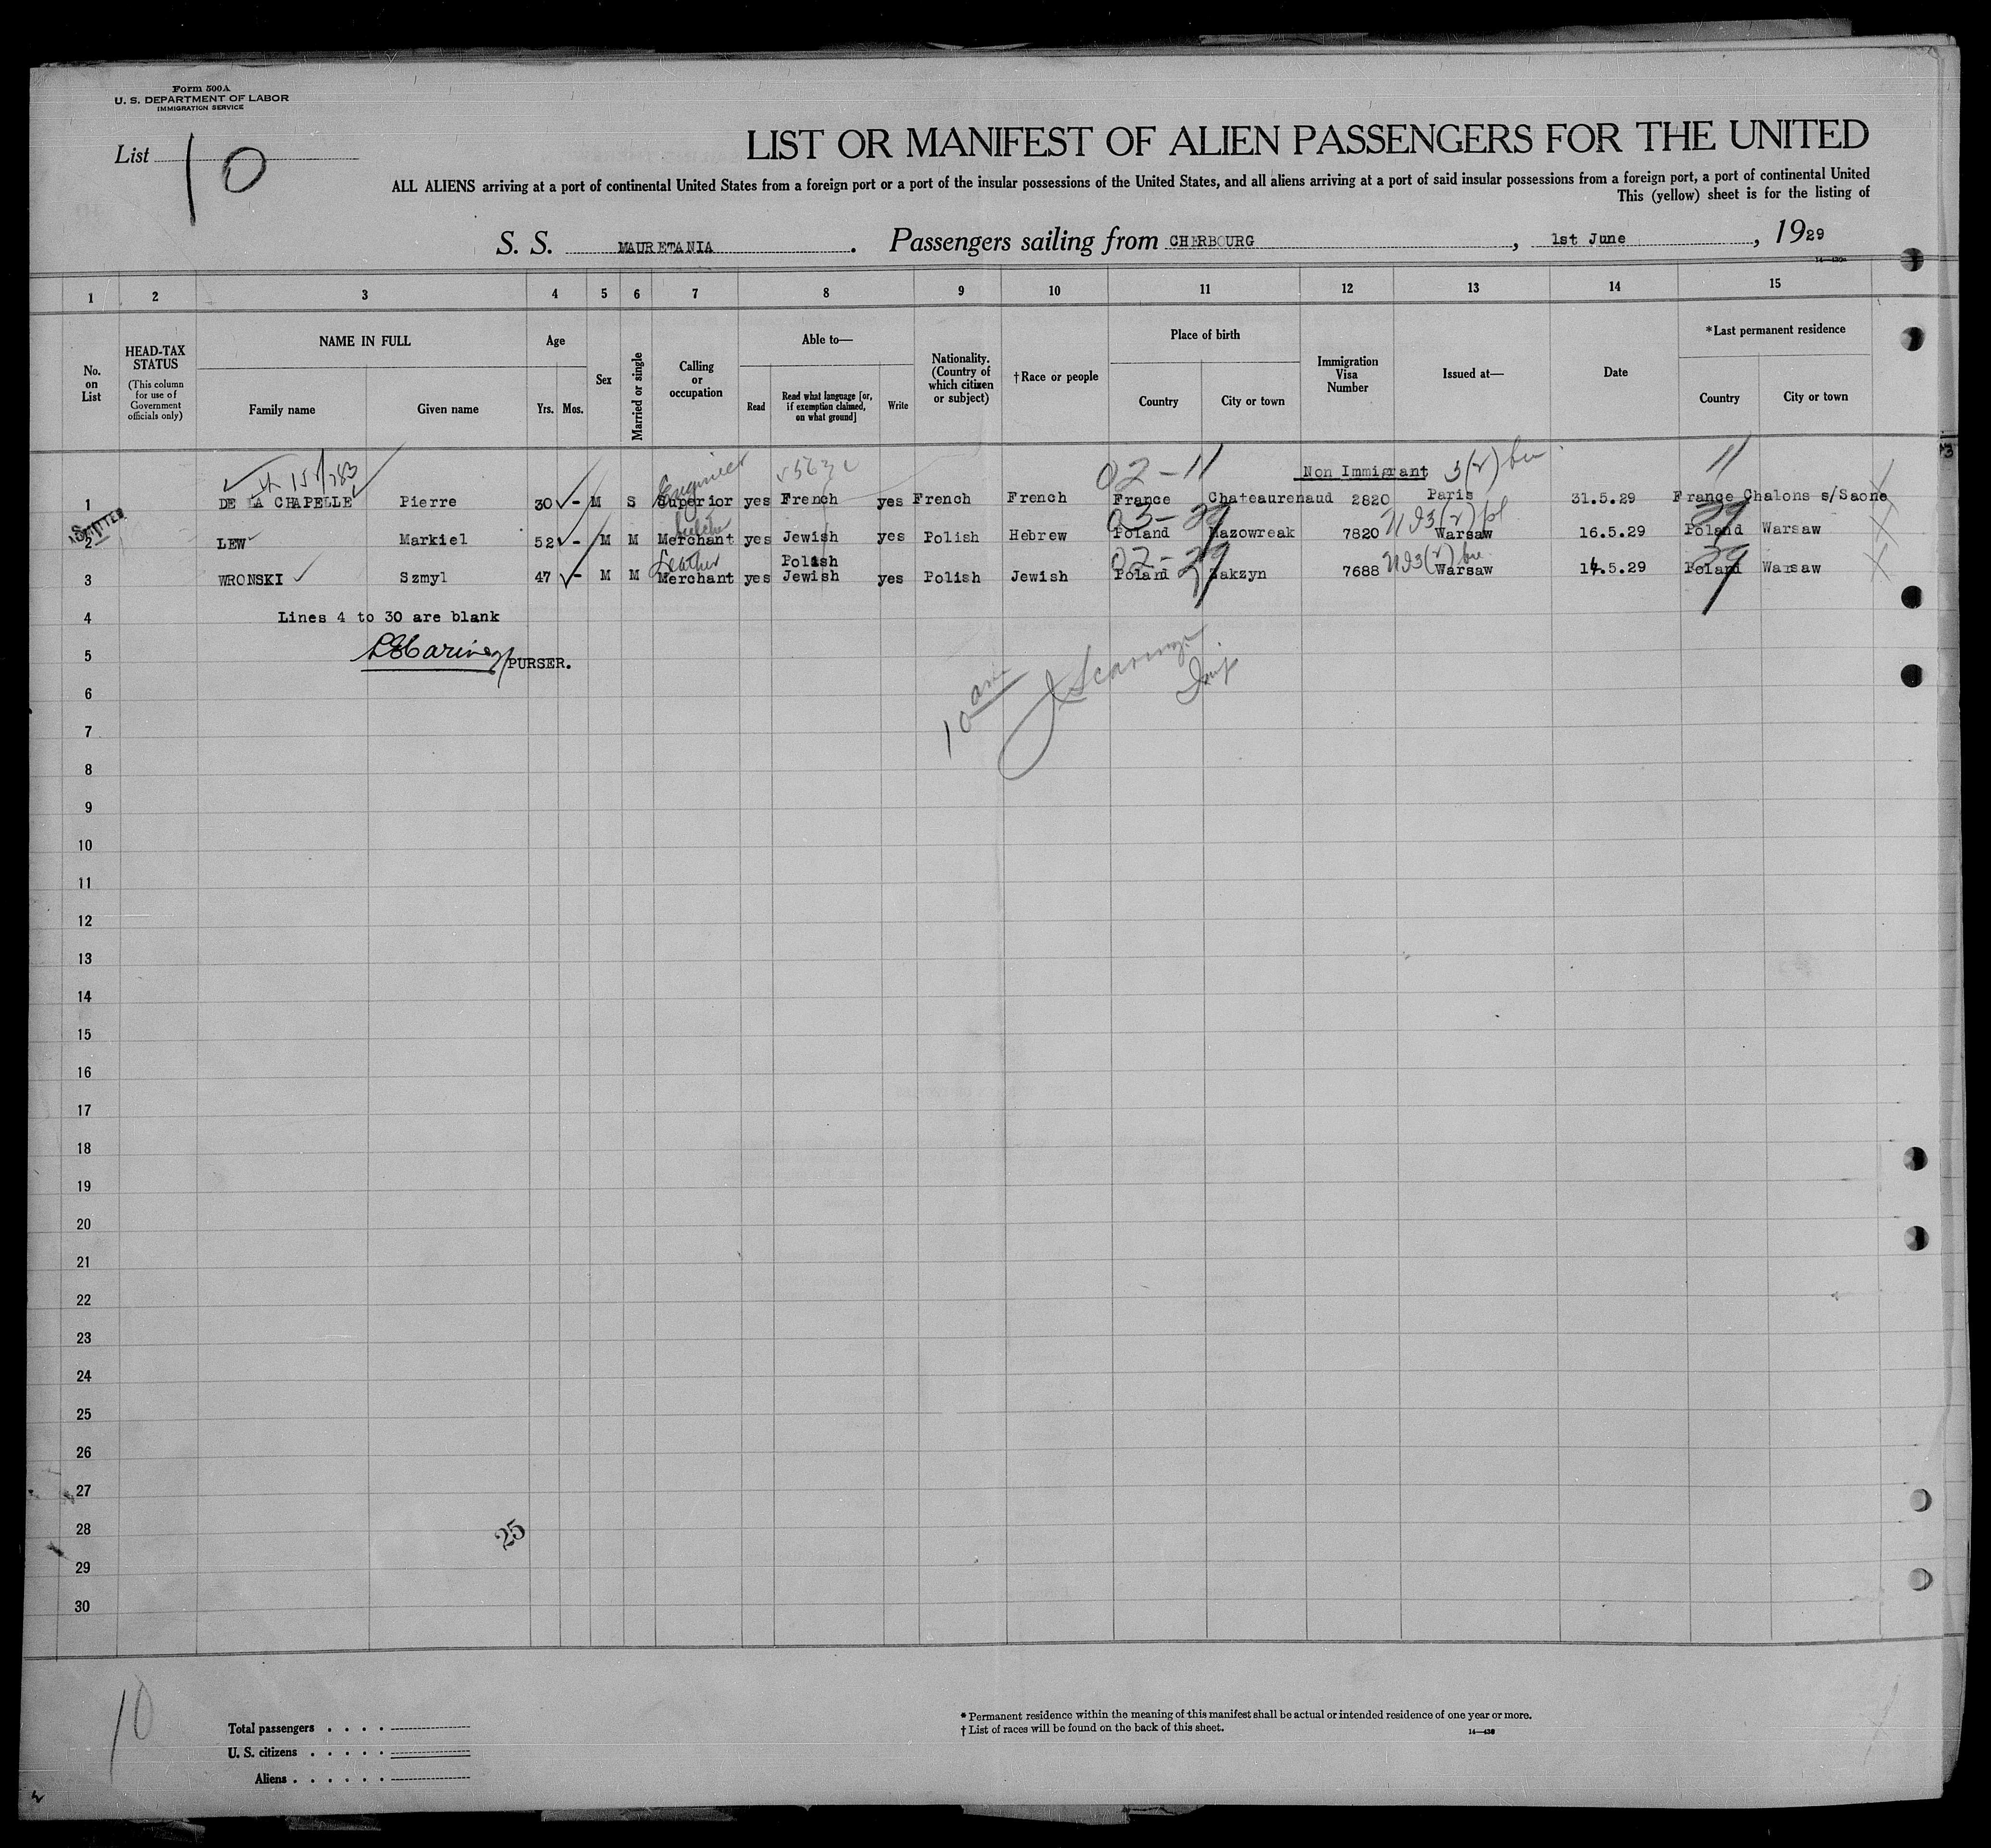 Form 500A
U. S. DEPARTMENT OF LABOR
IMMIGRATION SERVICE
List 10
LIST OR MANIFEST OF ALIEN PASSENGERS FOR THE UNITED
ALL ALIENS arriving at a port of continental United States from a foreign port or a port of the insular possessions of the United States, and all aliens arriving at a port of said insular possessions from a foreign port, a port of continental United
This (yellow) sheet is for the listing of
S. S. MAURETANIA. Passengers sailing from CHERBOURG, 1st June, 1929
1 2 3 4 5 6 7 8 9 10 11 12 13 14 15
No. on List
HEAD-TAX STATUS
(This column for use of Government officials only)
NAME IN FULL
Family name Given name
Age
Yrs. Mos.
Sex
Married or single
Calling or occupation
Able to—
Read
Read what language [or, if exemption claimed, on what ground]
Write
Nationality. (Country of which citizen or subject)
†Race or people
Place of birth
Country City or town
Immigration Visa Number
Issued at—
Date
*Last permanent residence
Country City or town
Engineer 02-11 Non Immigrant 3(2) 11
1 DE LA CHAPELLE Pierre 30 - M S Superior yes French yes French French France Chateaurenaud 2820 Paris 31.5.29 France Chalons s/Saone
03-29 29
2 LEW Markiel 52 - M M Merchant yes Jewish yes Polish Hebrew Poland Mazowreak 7820 Warsaw 16.5.29 Poland Warsaw
Leather Polish 02-29 29
3 WRONSKI Szmyl 47 - M M Merchant yes Jewish yes Polish Jewish Poland Zakzyn 7688 Warsaw 14.5.29 Poland Warsaw
4 Lines 4 to 30 are blank
5 PURSER.
6
10 am
7
8
9
10
11
12
13
14
15
16
17
18
19
20
21
22
23
24
25
26
27
28
25
29
30
10
Total passengers
U. S. citizens
Aliens
* Permanent residence within the meaning of this manifest shall be actual or intended residence of one year or more.
† List of races will be found on the back of this sheet.
14—430